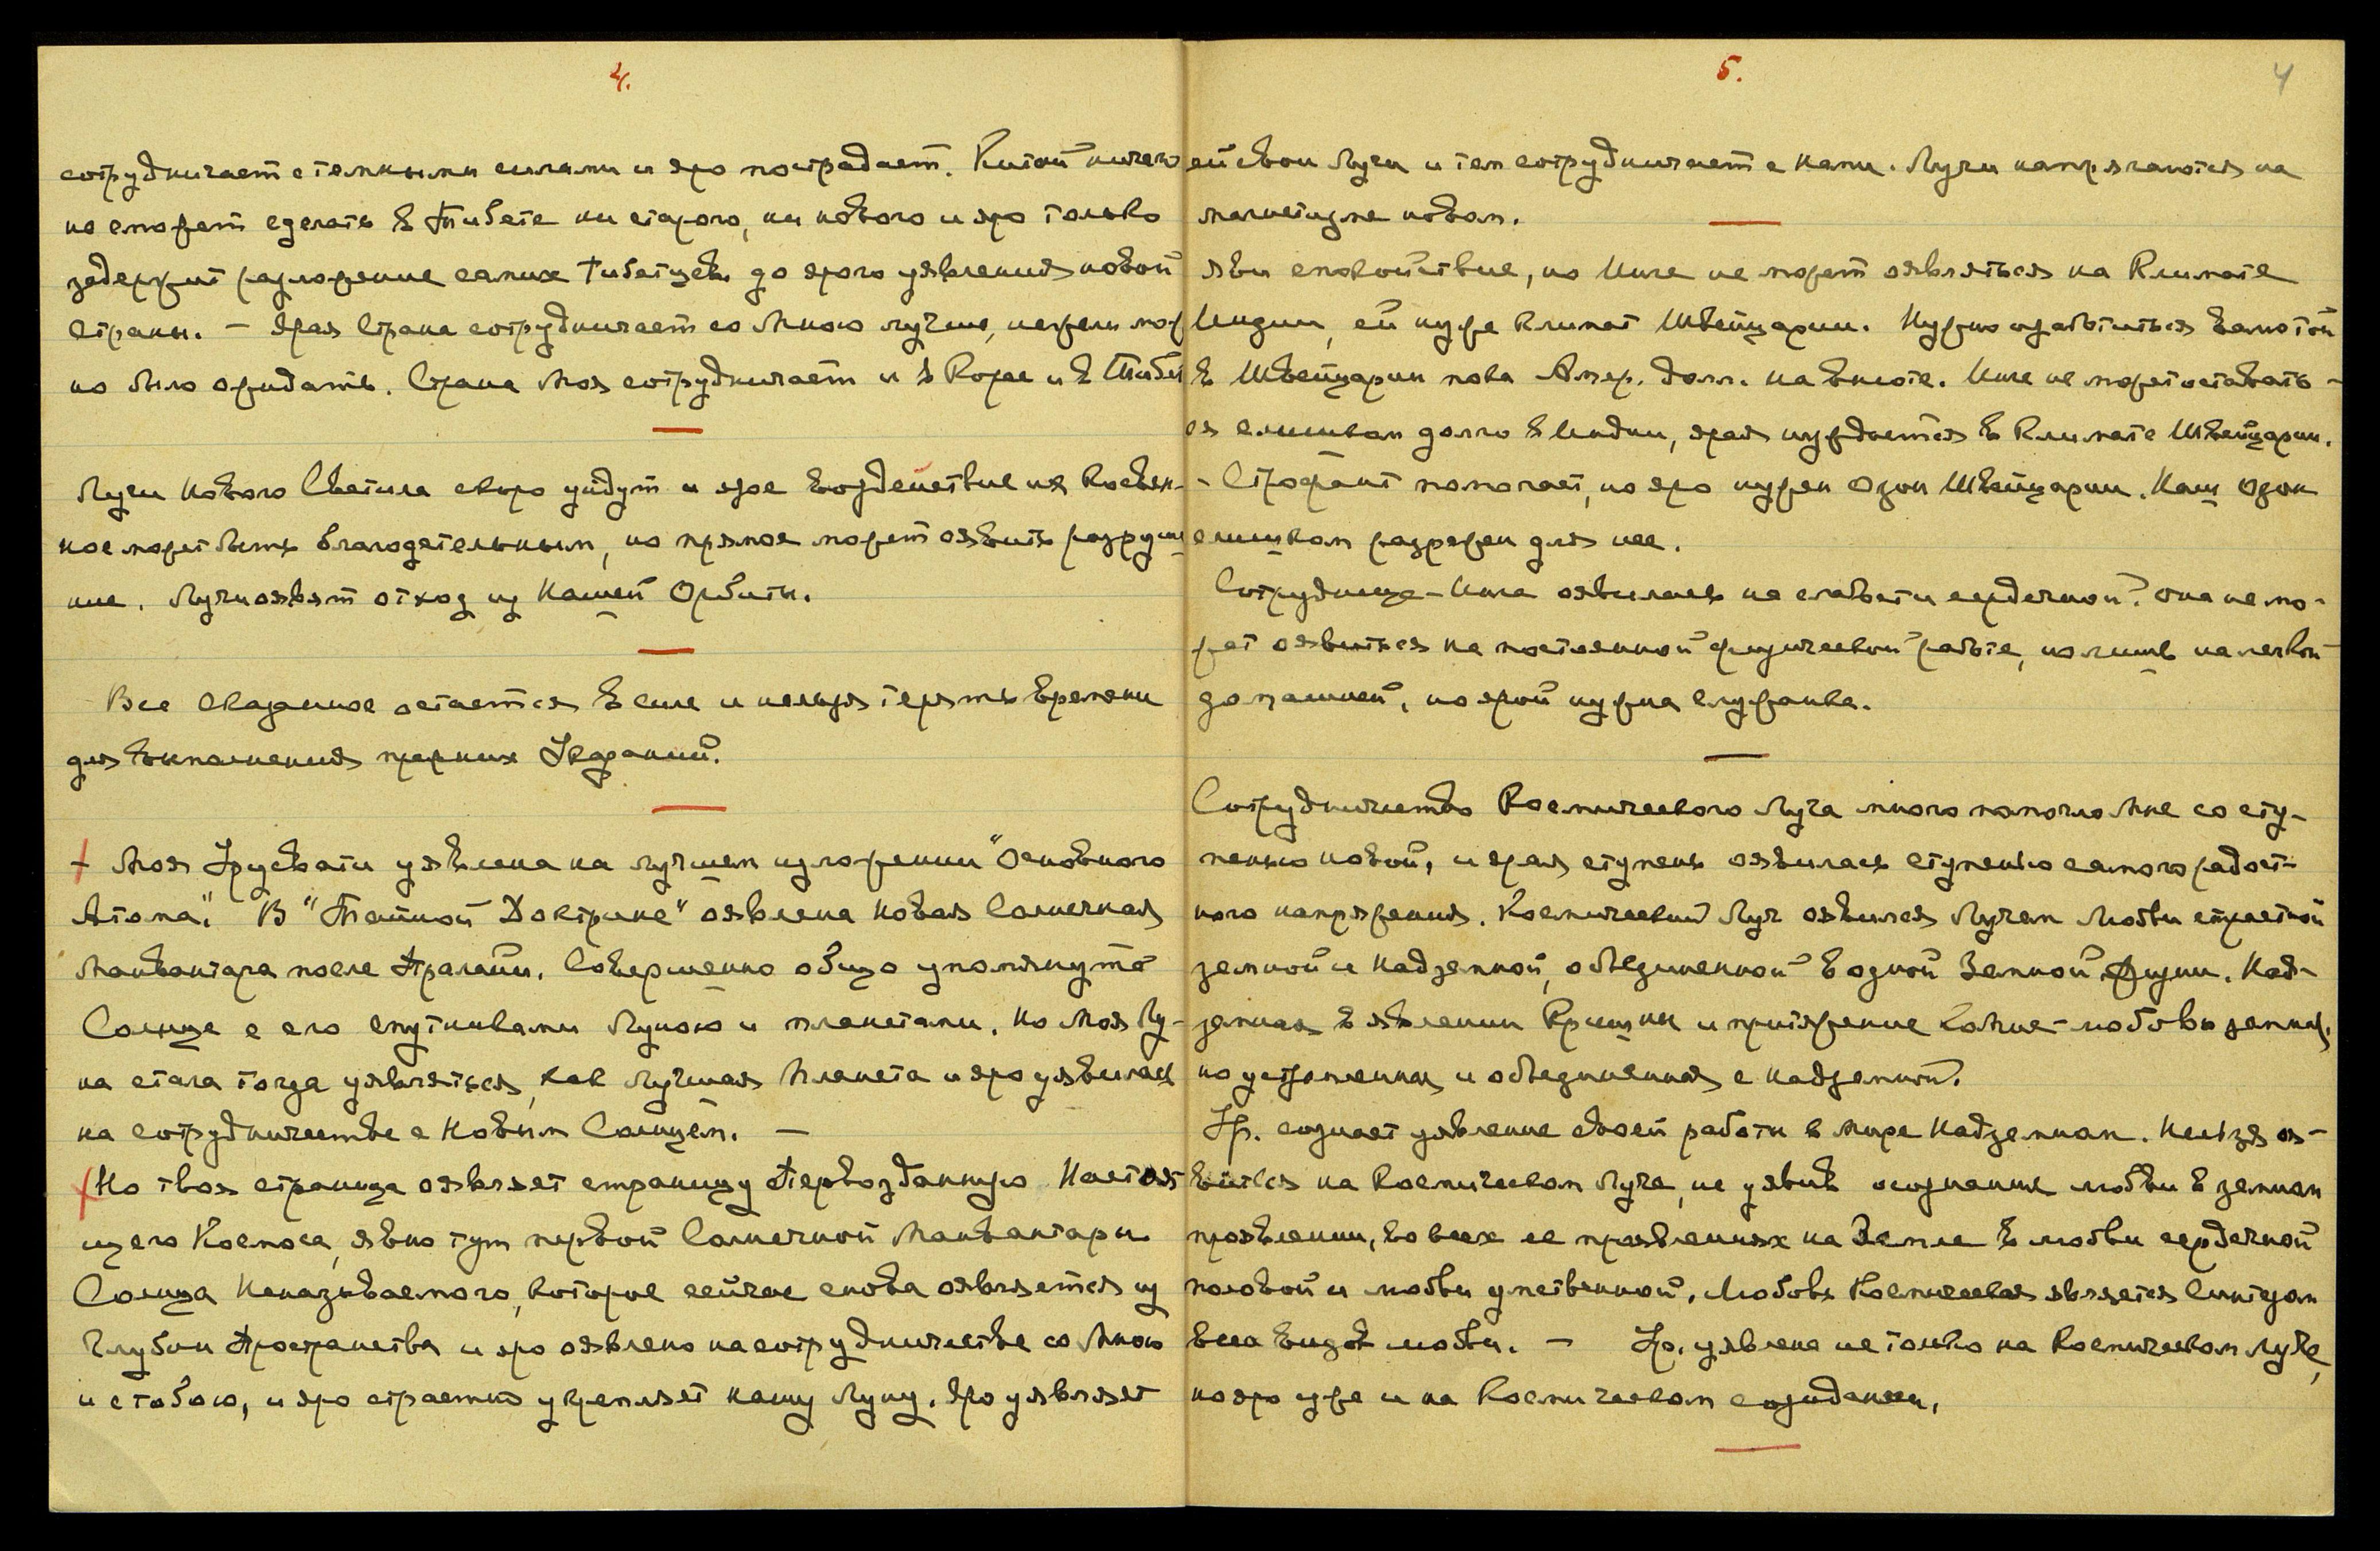 4.
сотрудничает с темными силами и яро пострадает. Китай ничего
не сможет сделать в Тибете ни старого, ни нового и яро только
задержит разложение самих Тибетцев до ярого уявления новой
Страны. — Ярая Страна сотрудничает со Мною лучше, нежели мож
но было ожидать. Страна Моя сотрудничает и в Корее и в Тибе
Лучи Нового Светила скоро уйдут и ярое воздействие их косвен-
ное может быть благодетельным, но прямое может оявить разруше
ние. Лучи оявят отход из Нашей Орбиты.
Все сказанное остается в силе и нельзя терять времени
для выполнения прежних Указаний.
+ Моя Урусвати уявлена на лучшем изложении "Основного
Атома". В "Тайной Доктрине" оявлена Новая Солнечная
Манвантара после Пралайи. Совершенно общо упомянуто
Солнце с его спутниками Луною и планетами. Но Моя Лу-
на стала тогда уявляться, как лучшая Планета и яро уявилась
на сотрудничестве с Новым Солнцем. —
Но твоя страница оявляет страницу Первозданную Настоя
щего Космоса, явно тут первой Солнечной Манвантары
Солнца Неназываемого, которое сейчас снова оявляется из
Глубин Пространства и яро оявлено на сотрудничестве со Мною
и с тобою, и яро страстно укрепляет нашу Луну. Яро уявляет
5.
4
ей свои Лучи и тем сотрудничает с Нами. Лучи напрягаются на
магнетизме новом.
Яви спокойствие, но Инге не может оявляться на климате
Индии, ей нужен климат Швейцарии. Нужно озаботиться валютой
в Швейцарии пока Амер. долл. на высоте. Инге не может оставать-
ся слишком долго в Индии, ярая нуждается в климате Швейцарии.
- Строфант помогает, но яро нужен озон Швейцарии. Наш озон
слишком разрежен для нее.
Сотрудница-Инге оявилась на слабости сердечной. Она не мо-
жет оявиться на постоянной физической работе, но лишь на легкой
домашней, но ярой нужна служанка.
Сотрудничество Космического Луча много помогло Мне со сту-
пенью новой, и ярая ступень оявилась ступенью самого радост-
ного напряжения. Космический Луч оявился Лучом Любви страстной
земной и Надземной, объединенной в одной Земной Жизни. Над-
земная в явлении Кришны и притяжение ко Мне-любовь земная,
но утонченная и объединенная с надземной.
Ур. сознает уявление своей работы в мире Надземном. Нельзя оя-
виться на Космическом Луче, не уявив осознание любви в земном
проявлении, во всех ее проявлениях на Земле в любви сердечной
половой и любви умственной. Любовь Космическая является Синтезом
всех видов любви. — Ур. уявлена не только на Космическом Луче,
но яро уже и на Космическом созидании.